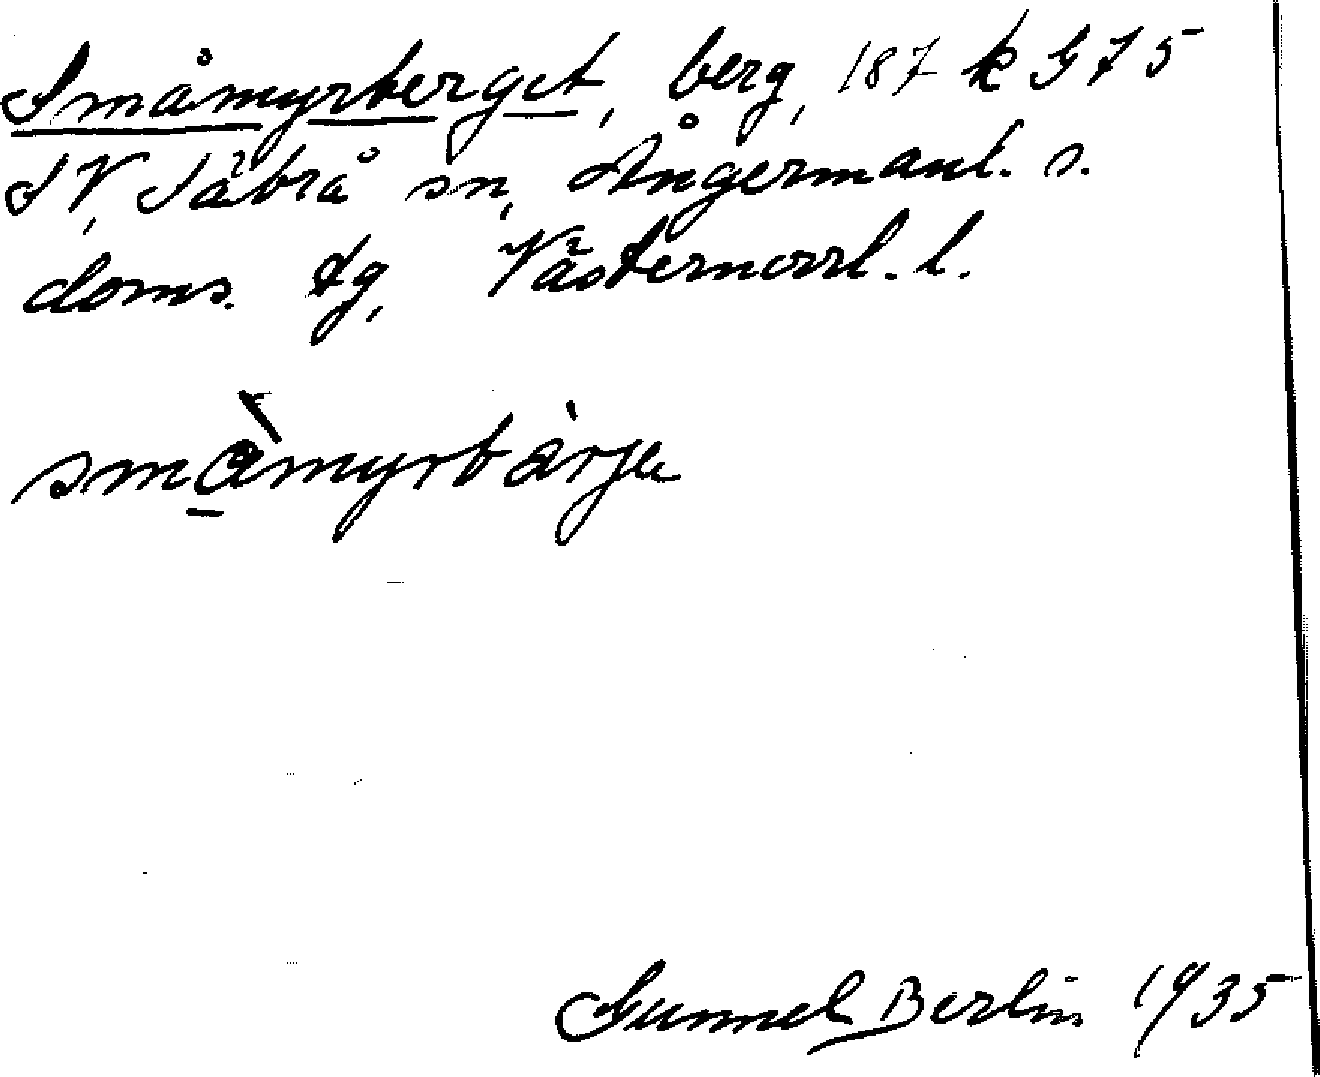 Småmyrberget, berg, 187 k G 7 5
SV, Säbrå sn, Ångermanl. s.
doms. tg, Västernorrl. l.
småmyrbärje
Gunnel Berlin 1935